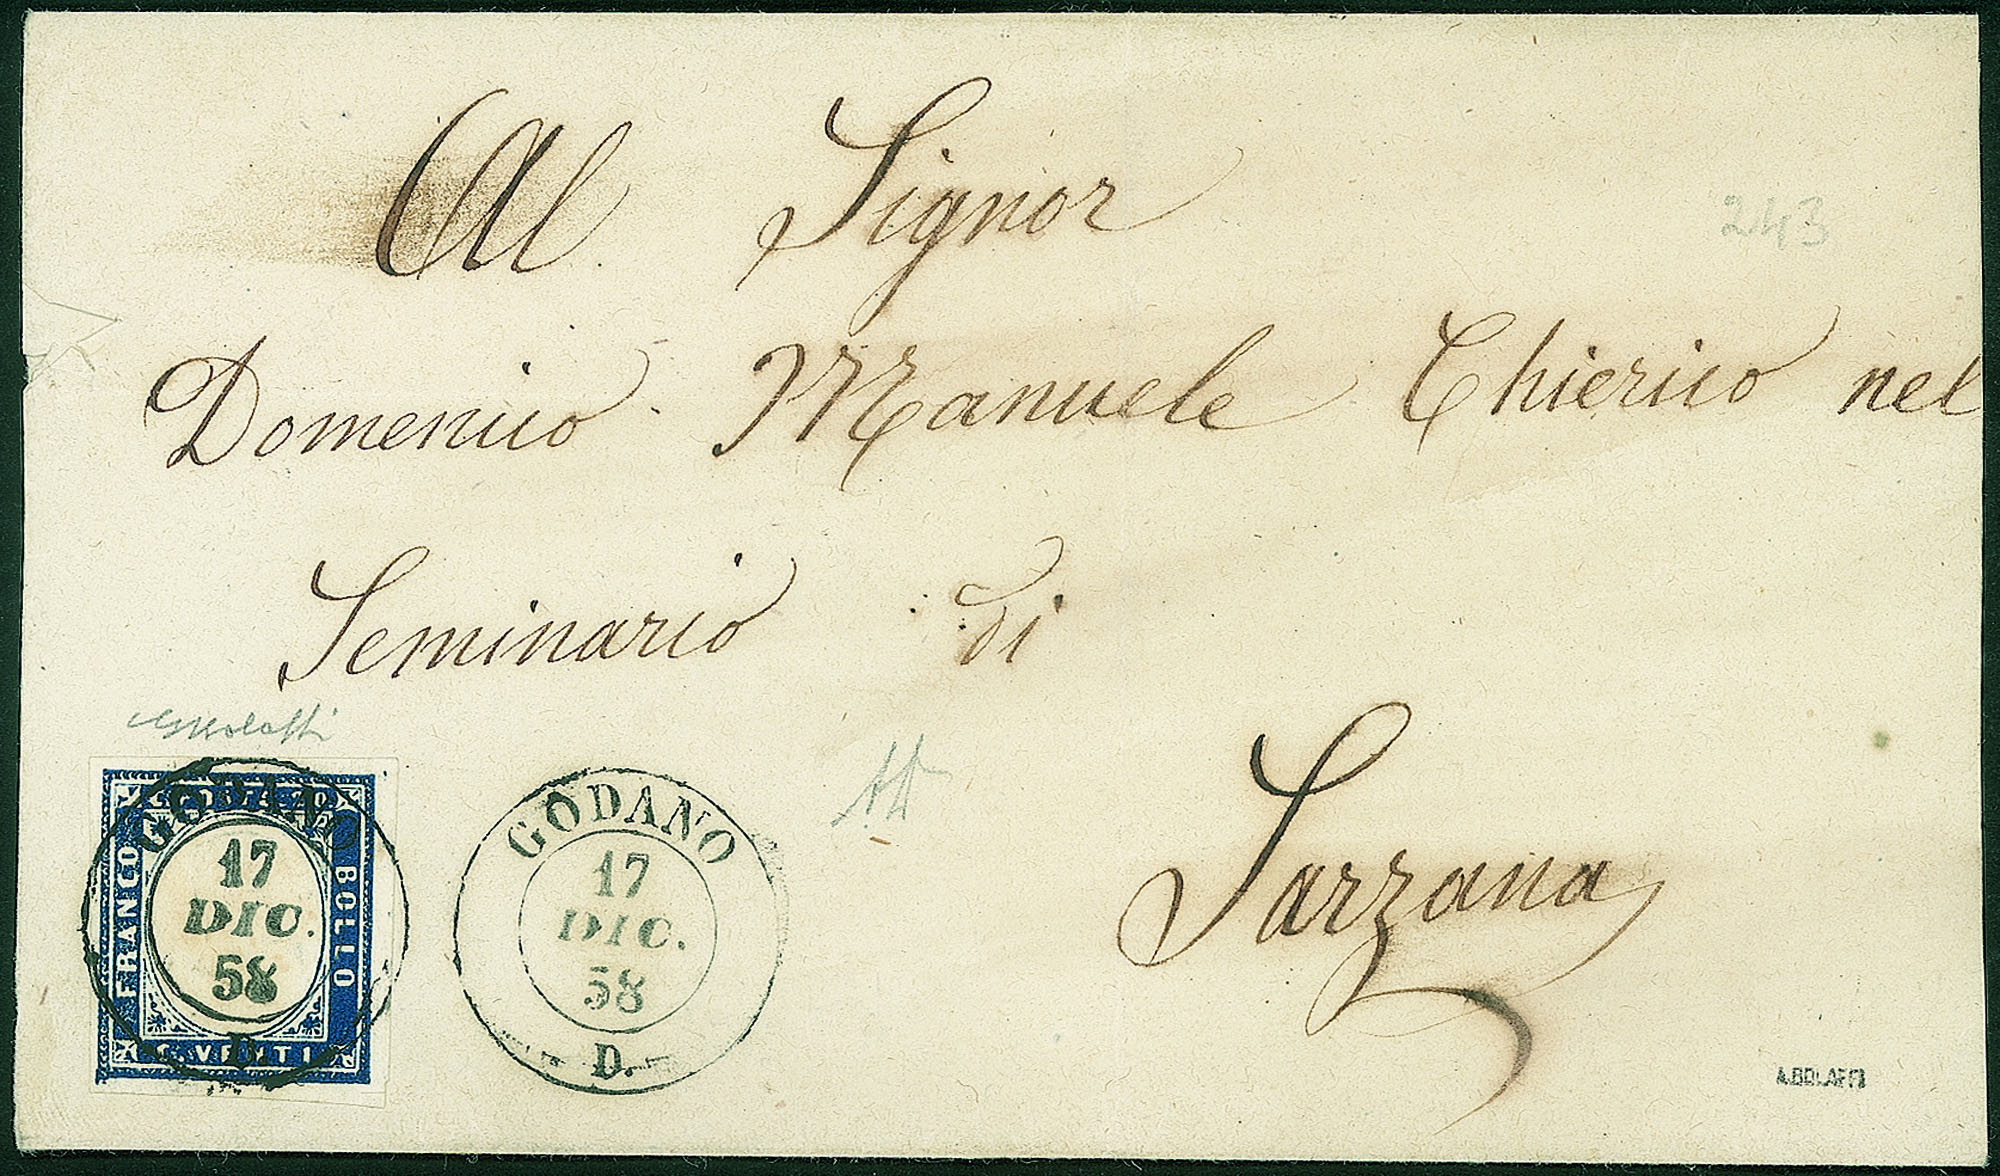 Al Signor
243
Domenico Manuele Chierico nel
Seminario di
Sarzana
C. POSTE 20
FRANCO
BOLLO
C. VENTI
GODANO
17
DIC.
58
D.
GODANO
17
DIC.
58
D.
A. BOLAFFI